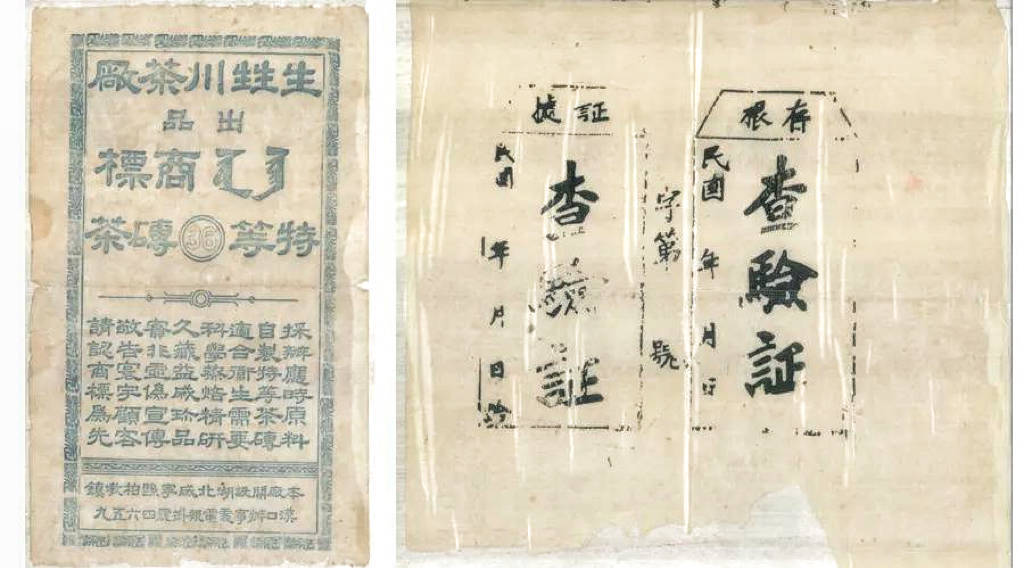 生甡川茶廠
出品
商標
特等36磚茶
採辦應時原料
自製特等茶磚
適合衛生需要
科學焙精研
久藏益成珍品
非虛偽宣傳
敬告寰宇顧客
請認商標爲先
本廠開設湖北咸寧縣柏墩鎮
漢口辦事處電報掛號四六五九
存根
查驗証
民國 年 月 日
字第 號
証據
查驗証
民國 年 月 日